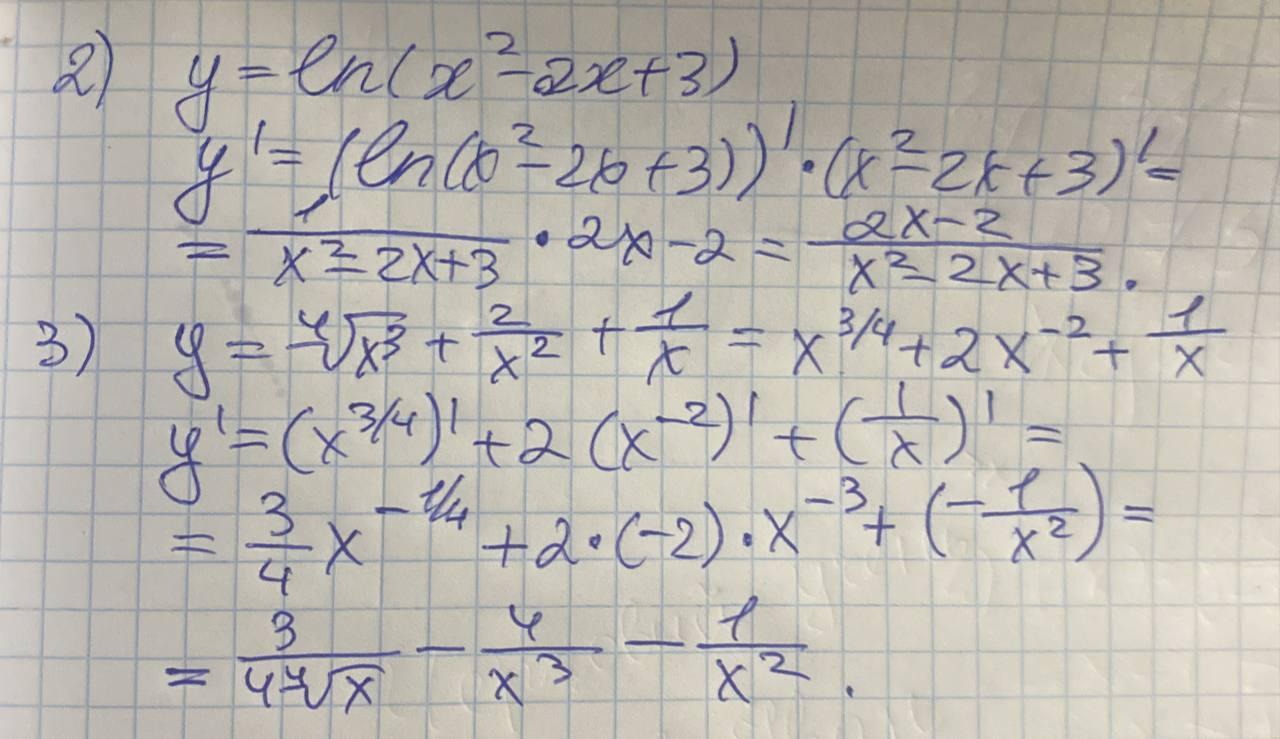 2) y = ln(x² - 2x + 3)
y' = (ln(x² - 2x + 3))' · (x² - 2x + 3)' =
= 1/(x² - 2x + 3) · 2x - 2 = (2x - 2)/(x² - 2x + 3).
3) y = ⁴√x³ + 2/x² + 1/x = x^(3/4) + 2x⁻² + 1/x
y' = (x^(3/4))' + 2(x⁻²)' + (1/x)' =
= 3/4 x^(-1/4) + 2 · (-2) · x⁻³ + (-1/x²) =
= 3/(4 ⁴√x) - 4/x³ - 1/x².